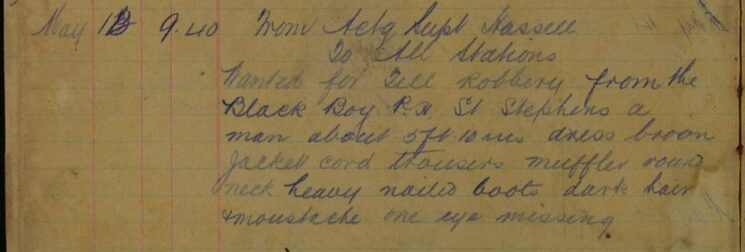 May 13 9.40 From Actg Supt Hassell
To All Stations
Wanted for Till Robbery from the
Black Boy P.H. St Stephens a
man about 5ft 10 ins dress brown
jacket cord trousers muffler round
neck heavy nailed boots dark hair
& moustache one eye missing